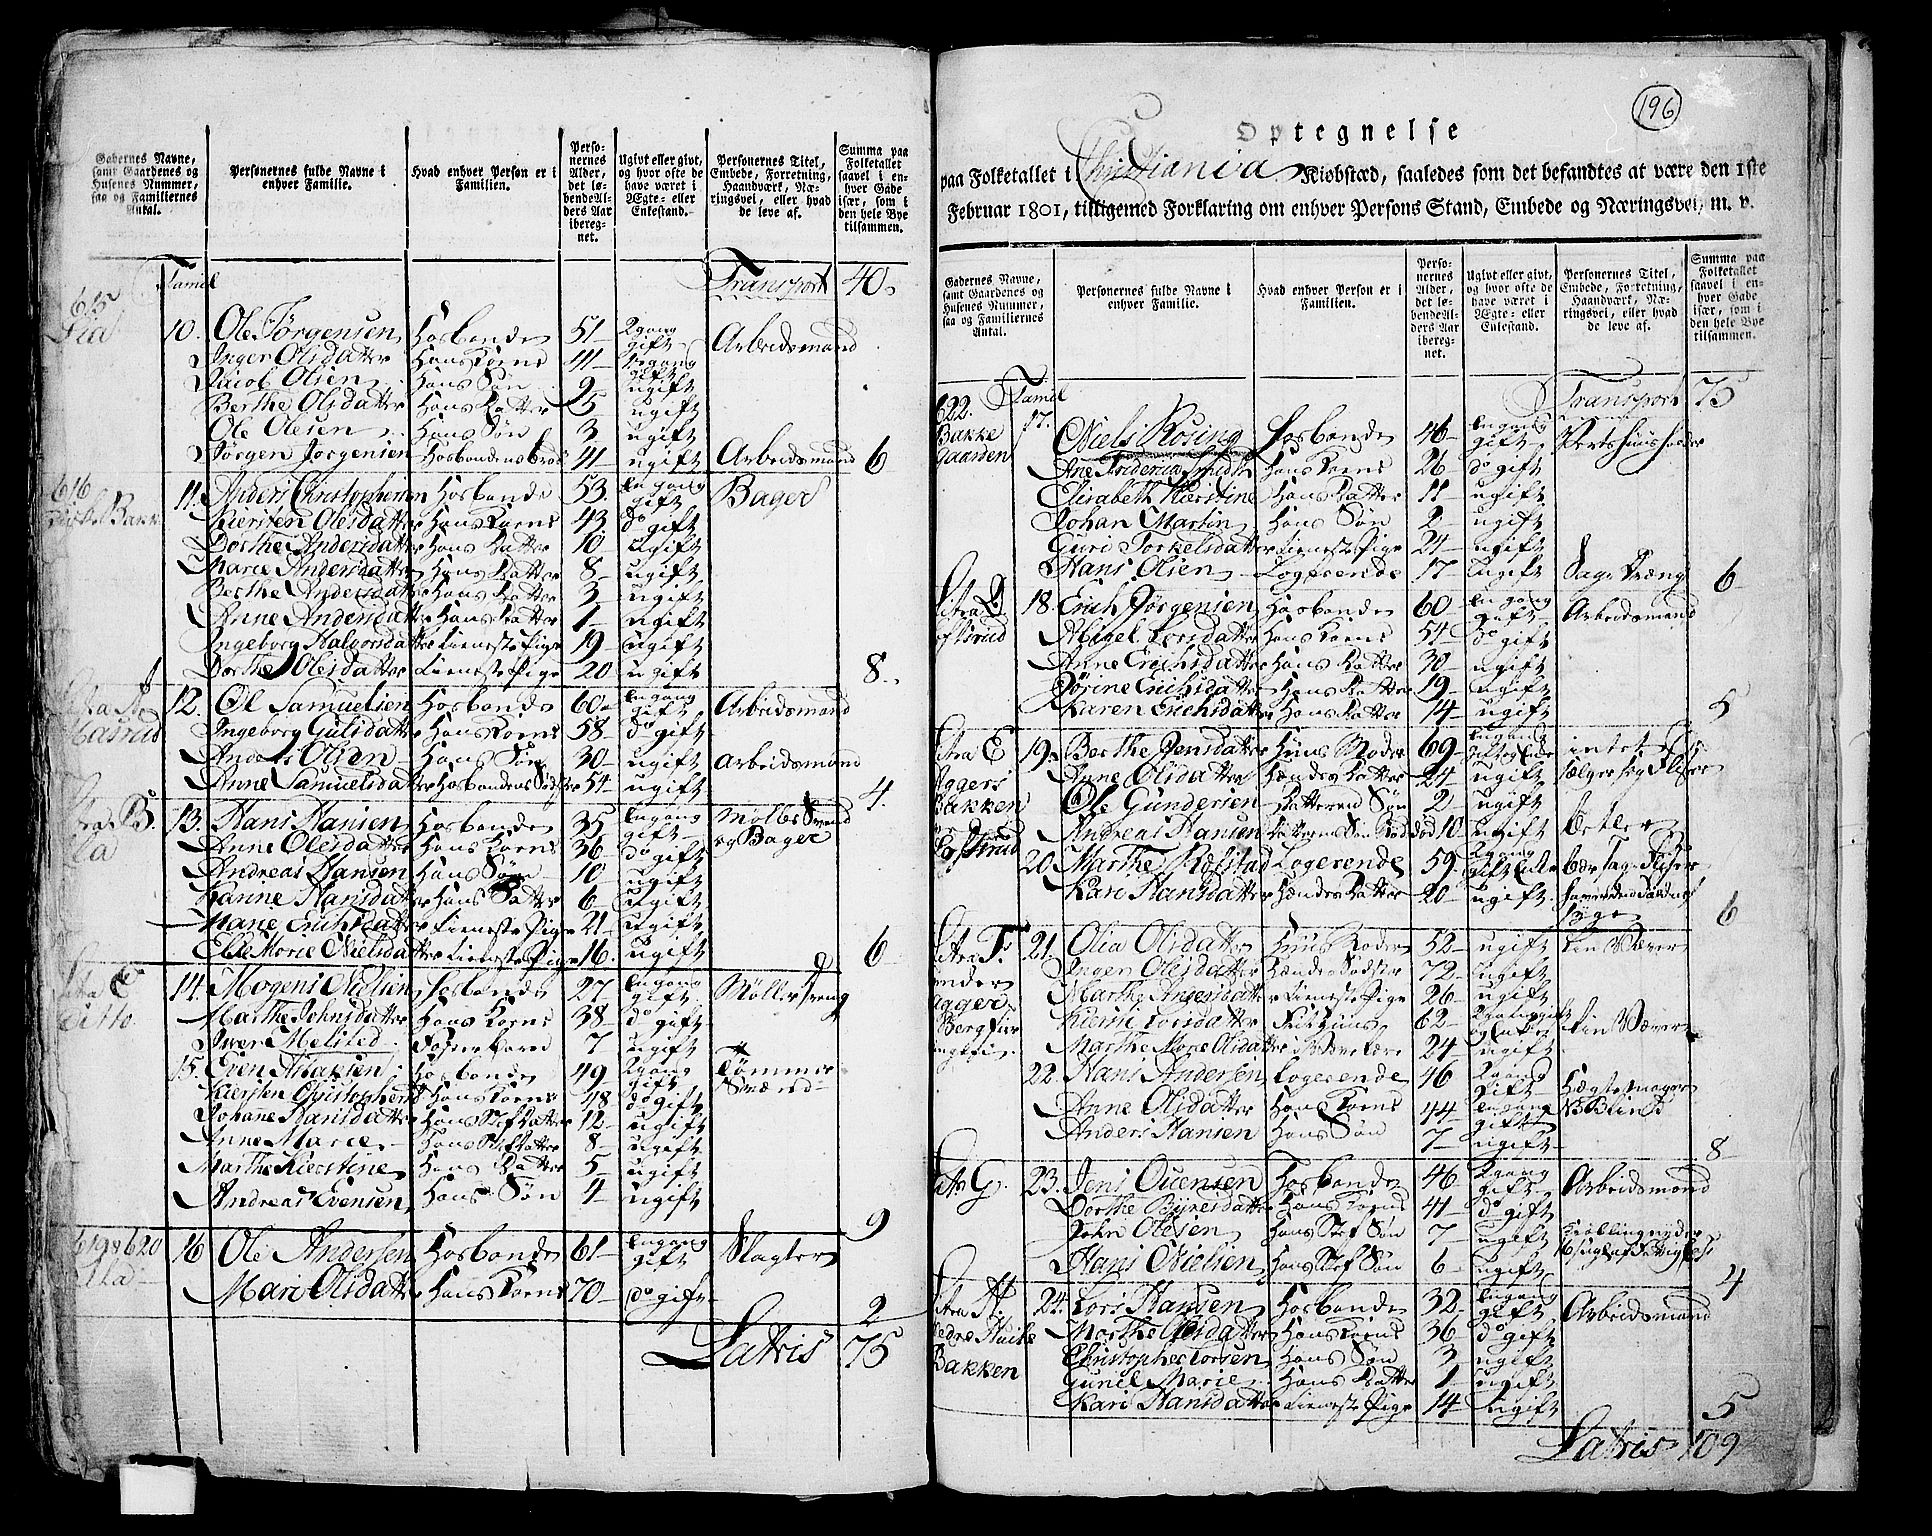 Gadernes Navne, samt Gaardenes og Husenes Nummer, saa og Familiernes Antal.
Personernes fulde Navne i enhver Familie.
Hvad enhver Person er i Familien.
Personernes Alder, det løbendeAlders Aar iberegnet.
Ugivt eller givt, og hvor ofte de have været i Ægte- eller Enkestand.
Personernes Titel, Embede, Forretning, Haandværk, Næringsvei, eller hvad de leve af.
Summa paa Folketallet saavel i enhver Gade især, som i den hele Bye tilsammen.
Famil Transport 40
615 10. Ole Jørgensen Hosbonde 51 2 gang gift Arbeidsmand
Inger Olsdatter Hans Kone 41 gang gift
Jacob Olsen Hans Søn ugift
Berthe Olsdatter Hans Datter 5 ugift
Ole Olesen Hans Søn 3 ugift
Jørgen Jørgensen Hosbondens 41 ugift Arbeidsmand 6
616 11. Anders Christophersen Hosbonde 53 en gang gift Bager
Kiersten Olesdatter Hans Kone 43 do gift
Dorthe Andersdatter Hans Datter 10 ugift
Marie Andersdatter Hans Datter 8 ugift
Berthe Andersdatter Hans Datter 3 ugift
Anne Andersdatter Hans Datter 1 ugift
Ingeborg Halvorsdatter tieneste Pige 19 ugift
Dorthe Olesdatter tieneste Pige 20 ugift 8
12. Ol Samuelsen Hosbonde 60 en gang gift Arbeidsmand
Ingeborg Gulsdatter Hans Kone 58 do gift
Anders Olsen Hans Søn 30 ugift Arbeidsmand
Anne Samuelsdatter Hosbondens Søster 54 ugift 4
B. 13. Hans Hansen Hosbonde 35 en gang gift Mølle Svend og Bager
Anne Olesdatter Hans Kone 36 do gift
Andreas Hansen Hans Søn 10 ugift
Karine Hansdatter Hans Datter 6 ugift
Marie Erichsdatter tieneste Pige 21 ugift
Elle Marie Nielsdatter tieneste Pige 16 ugift 6
C. Ditto 14. Mogens Nielsen Hosbonde 27 en gang gift Møllersveng
Marthe Johnsdatter Hans Kone 38 do gift
Iver Melsted Foster barn 7 ugift
15. Even Hosbonde 49 2 gang gift Tømmer Svend
Kiersten Christophers Hans Kone 48 do gift
Johanne Hansdatter Hans Stef datter 12 ugift
Anne Marie Hans Stefdatter 8 ugift
Marthe Kierstine Hans Datter 5 ugift
Andreas Evensen Hans Søn 4 ugift 9
619 & 620 16 Ole Andersen Hosbonde 61 en gang gift Slagter
Mari Olsdatter Hans Kone 70 do gift 2
Latris 75
196
Optegnelse
paa Folketallet i Christiania Kiøbstæd, saaledes som det befandtes at være den 1ste
Februar 1801, tilligemed Forklaring om enhver Persons Stand, Embede og Næringsvei, m. v.
Gadernes Navne, samt Gaardenes og Husenes Nummer, saa og Familiernes Antal.
Personernes fulde Navne i enhver Familie.
Hvad enhver Person er i Familien.
Personernes Alder, det løbendeAlders Aar iberegnet.
Ugivt eller givt, og hvor ofte de have været i Ægte- eller Enkestand.
Personernes Titel, Embede, Forretning, Haandværk, Næringsvei, eller hvad de leve af.
Summa paa Folketallet saavel i enhver Gade især, som i den hele Bye tilsammen.
Famil Transport 75
622. Bakke gaarden 17. Niels Rosing Hosbonde 46 en gang gift Vertshuusholder
Ane Fridericia Smidth Hans Kone 26 do gift
Elisabeth Kierstine Hans Datter 11 ugift
Johan Martin Hans Søn 2 ugift
Guri Torkelsdatter tieneste Pige 24 ugift
Hans Olsen Logerende 17 ugift 6
Litra D 18. Erich Jørgensen Hosbonde 60 en gang gift Arbeidsmand
Abigel Larsdatter Hans Kone 54 do gift
Anne Erichsdatter Hans Datter 30 ugift
Dorine Erichsdatter Hans Datter 19 ugift
Karen Erichsdatter Hans Datter 14 ugift 5
Litra E Aggers Bakken 19. Berthe Jensdatter Huus Moder 69 en gang
Anne Olsdatter Hendes Datter 24 ugift
Ole Gundersen Datterens Søn 2 ugift
Andreas Hansen 10 ugift betler
20 Marthe Logerende 59
Kari Hansdatter Hendes Datter 20 ugift 6
Litra F. under Agger Berg 21. Olia Olsdatter Huus Moder 52 ugift
Inger Olesdatter Hendes Søster 72 ugift
Marthe Angersdatter tieneste Pige 26 ugift
Larsdatter 62
Marthe Marie Olsdatter 24 ugift
22. Hans Andersen Logerende 46 2 gang gift Hægtemager NB Blind
Anne Olsdatter Hans Kone 44 en gang gift
Anders Hansen Hans Søn 7 ugift 8
Litra G. 23. Jens Ouensen Hosbonde 46 2 gang gift Arbeidsmand
Dorthe Hans Kone 41 do gift
John Olesen Hans Stef Søn 7 ugift
Hans Nielsen Hans Stef Søn 6 ugift 4
Litra H. Bakken 24. Lars Hansen Hosbonde 32 en gang gift Arbeidsmand
Marthe Olsdatter Hans Kone 36 do gift
Christopher Larsen Hans Søn 3 ugift
Gunel Marie Hans Datter 1 ugift
Kari Hansdatter tieneste Pige 14 ugift 5
Latris 109